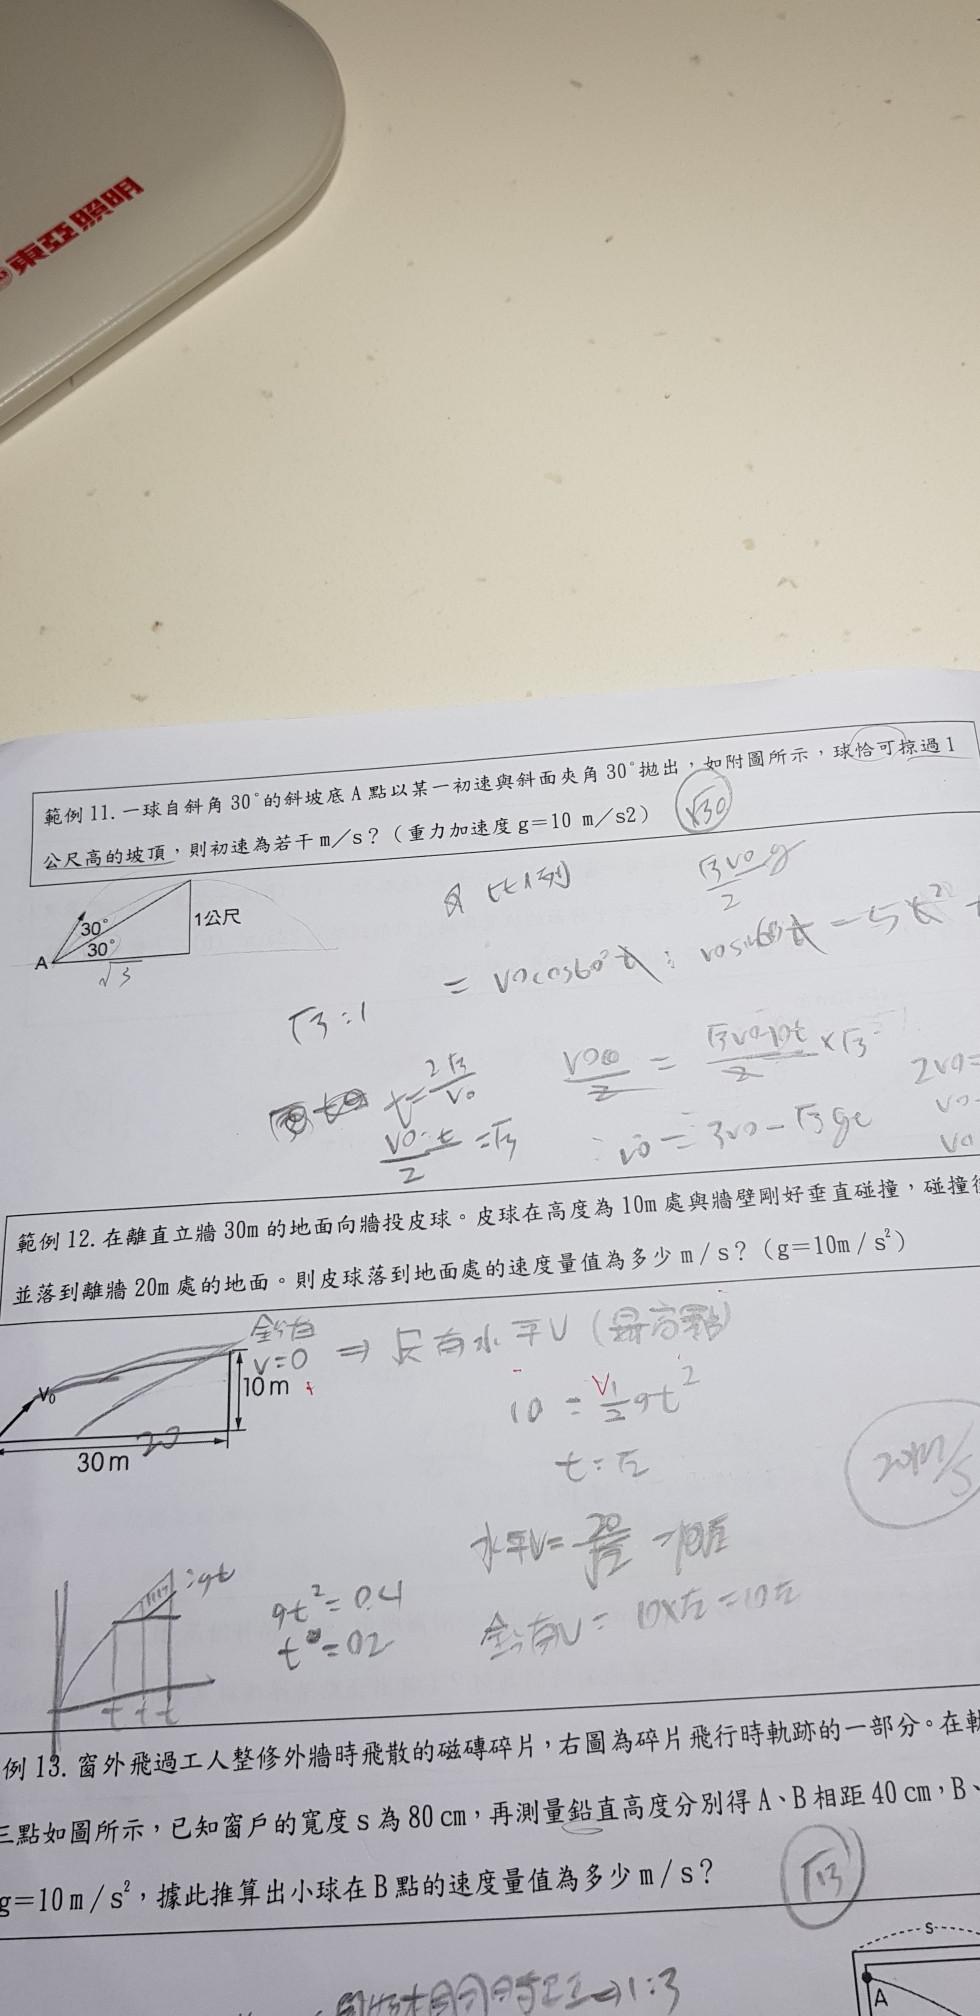 東亞照明
範例 11. 一球自斜角 30°的斜坡底 A 點以某一初速與斜面夾角 30°拋出,如附圖所示,球恰可掠過 1
公尺高的坡頂,則初速為若干 m/s?(重力加速度 g=10 m/s2)
√30
30°
30°
A
1公尺
√3
√3:1
= v0cos60°t : v0sin60°t - 5t²
t = 2√3/v0
v0·t/2 = √3
v0 = 3v0 - √3gt
2v0=
範例 12. 在離直立牆 30m 的地面向牆投皮球。皮球在高度為 10m 處與牆壁剛好垂直碰撞,碰撞
並落到離牆 20m 處的地面。則皮球落到地面處的速度量值為多少 m/s?(g=10m/s²)
鉛直
v=0 ⇒ 只有水平V(最高點)
V₀
10m
30m
20
10 = 1/2 gt²
t=√2
20m/s
水平V= 20/√2 = 10√2
鉛直V= 10×√2=10√2
:gt
gt²=0.4
t=0.2
t t t
例 13. 窗外飛過工人整修外牆時飛散的磁磚碎片,右圖為碎片飛行時軌跡的一部分。在軌
三點如圖所示,已知窗戶的寬度 s 為 80 cm,再測量鉛直高度分別得 A、B 相距 40 cm,B、
g=10m/s²,據此推算出小球在 B 點的速度量值為多少 m/s?
√13
S
A
⇒1:3